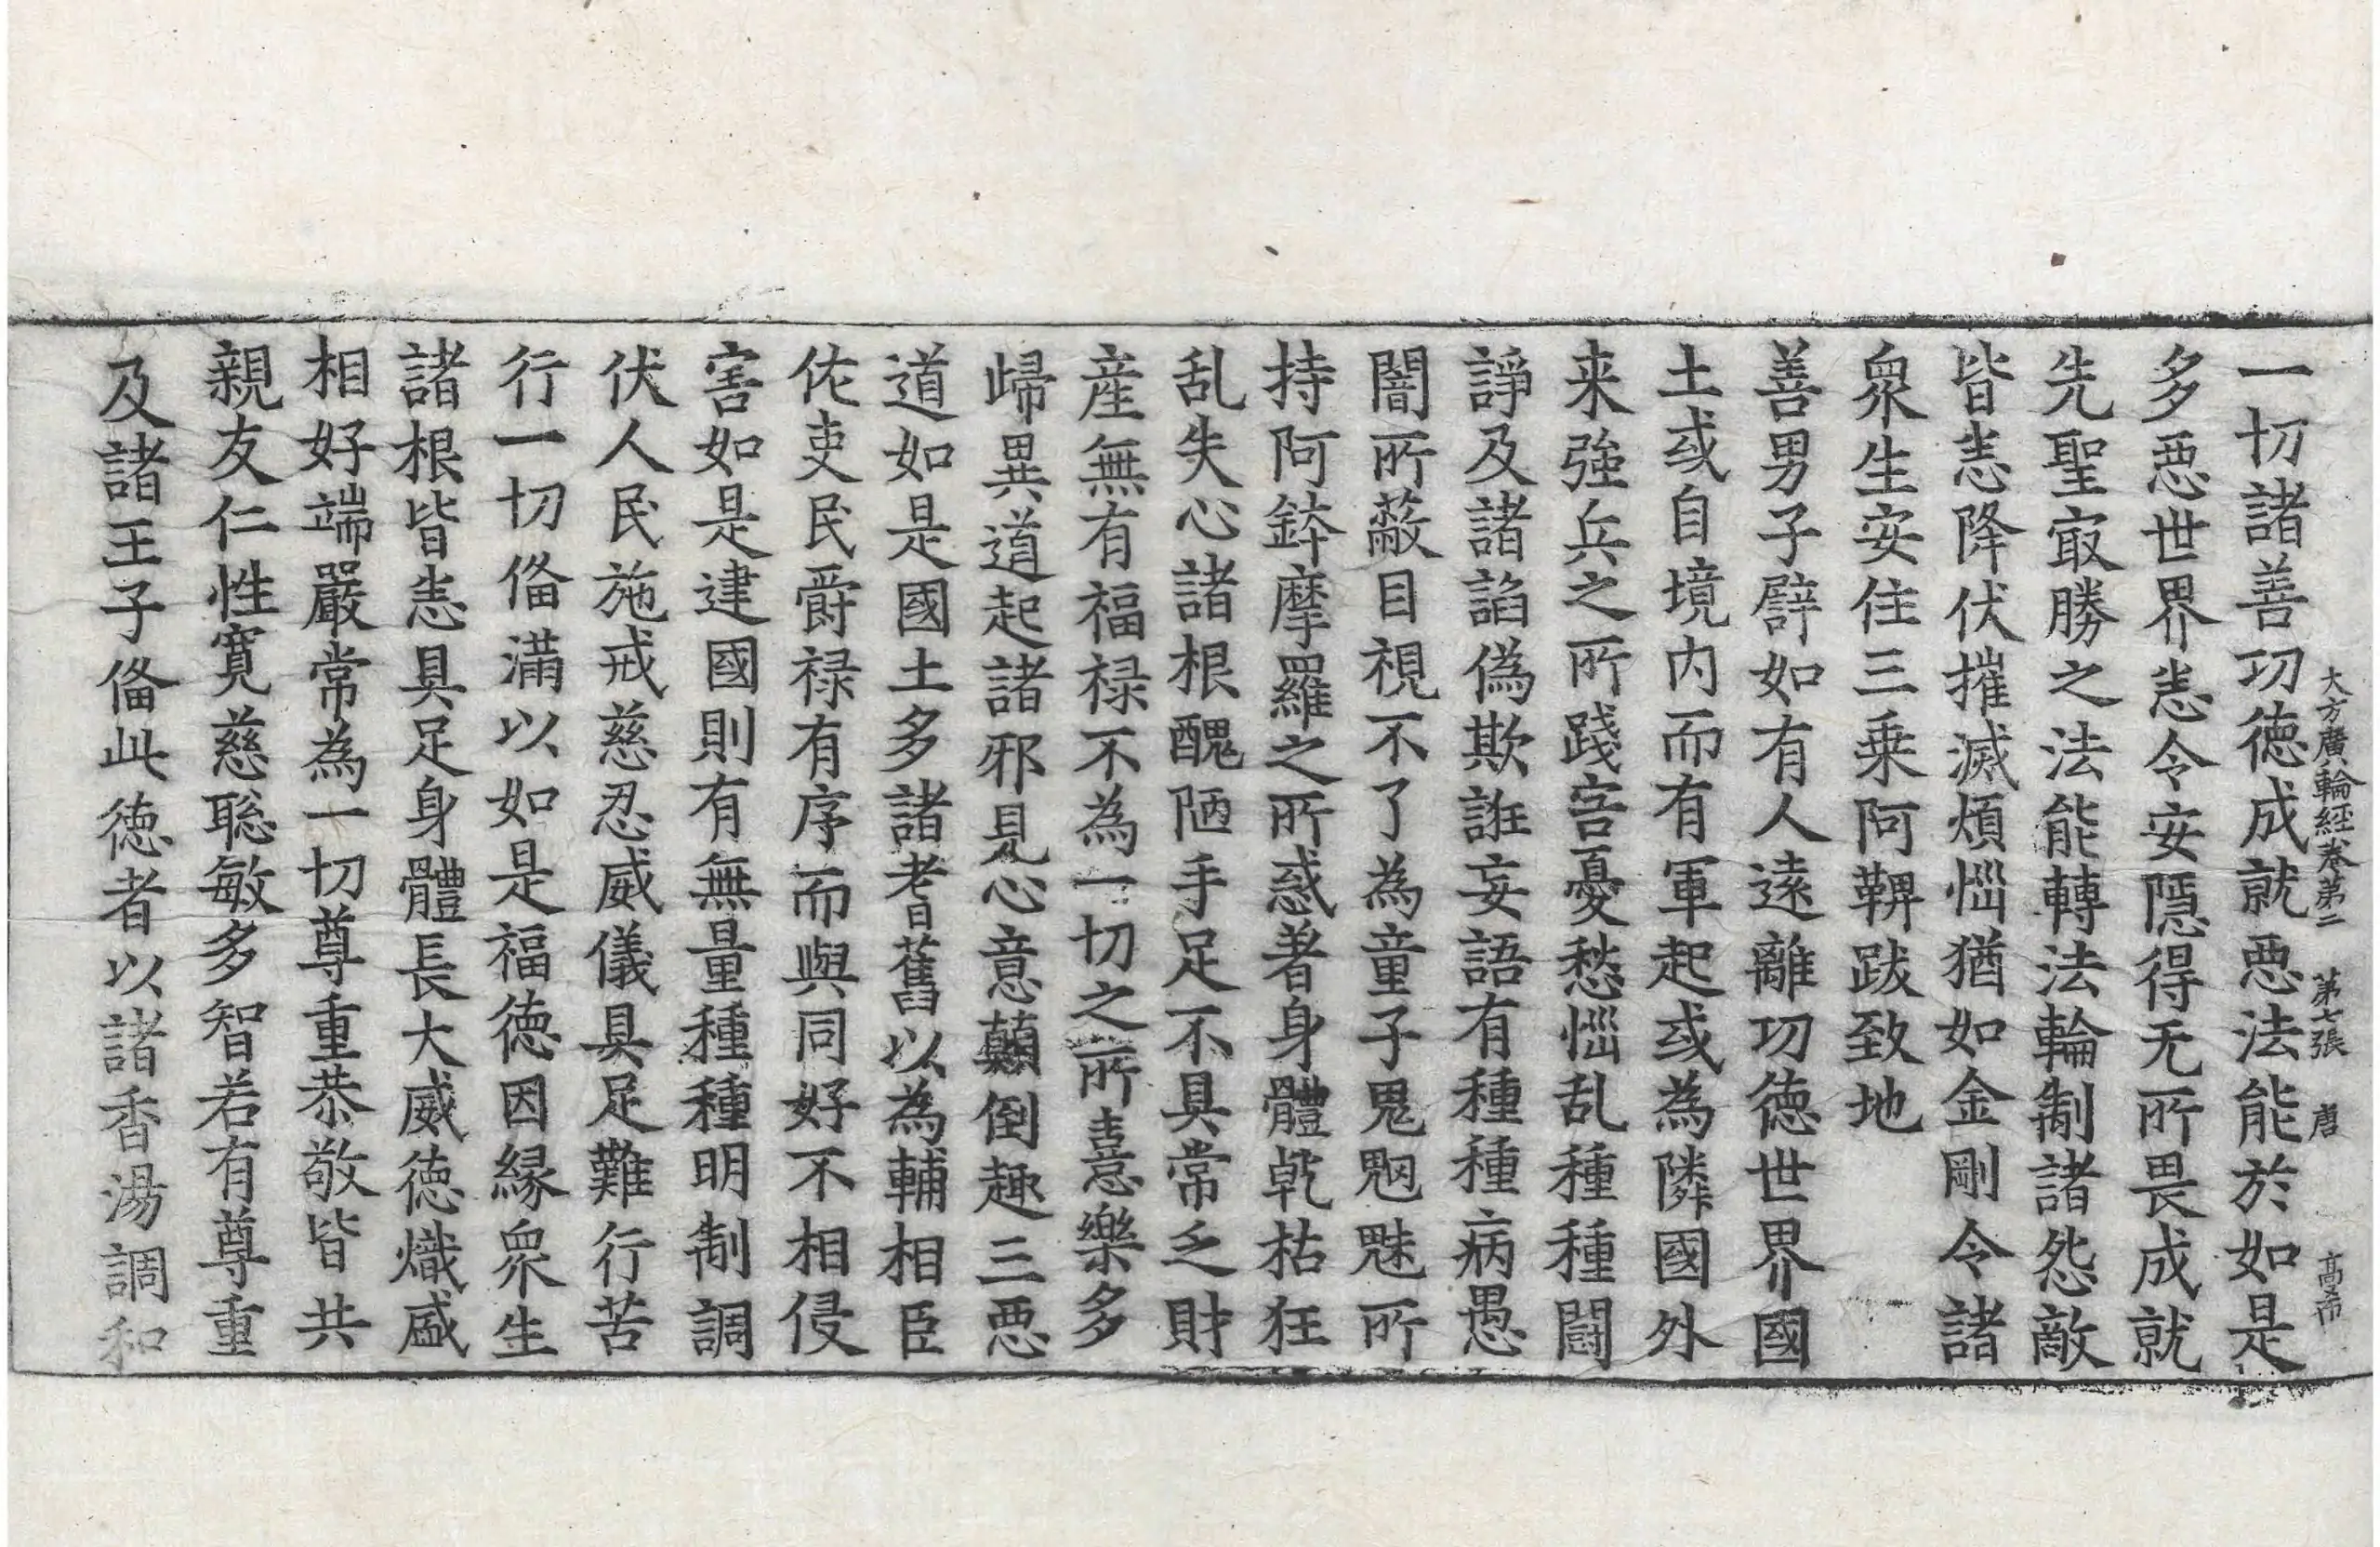 大方廣輪經卷第二 第七張 唐 高希
一切諸善功德成就惡法能於如是
多惡世界悉令安隱得无所畏成就
先聖㝡勝之法能轉法輪制諸怨敵
皆悉降伏摧滅煩惱猶如金剛令諸
衆生安住三乗阿鞞跋致地
善男子譬如有人遠離功德世界國
土或自境内而有軍起或為隣國外
来強兵之所踐害憂愁惱乱種種鬪
諍及諸諂偽欺誑妄語有種種病愚
闇所蔽目視不了為童子鬼魍魅所
持阿鉢摩羅之所惑著身體乾枯狂
乱失心諸根醜陋手足不具常乏財
産無有福禄不為一切之所憙樂多
歸異道起諸邪見心意顛倒趣三惡
道如是國土多諸耆舊以為輔相臣
佐吏民爵禄有序而與同好不相侵
害如是建國則有無量種種明制調
伏人民施戒慈忍威儀具足難行苦
行一切俻滿以如是福德因緣衆生
諸根皆悉具足身體長大威德熾盛
相好端嚴常為一切尊重恭敬皆共
親友仁性寛慈聡敏多智若有尊重
及諸王子俻此德者以諸香湯調和